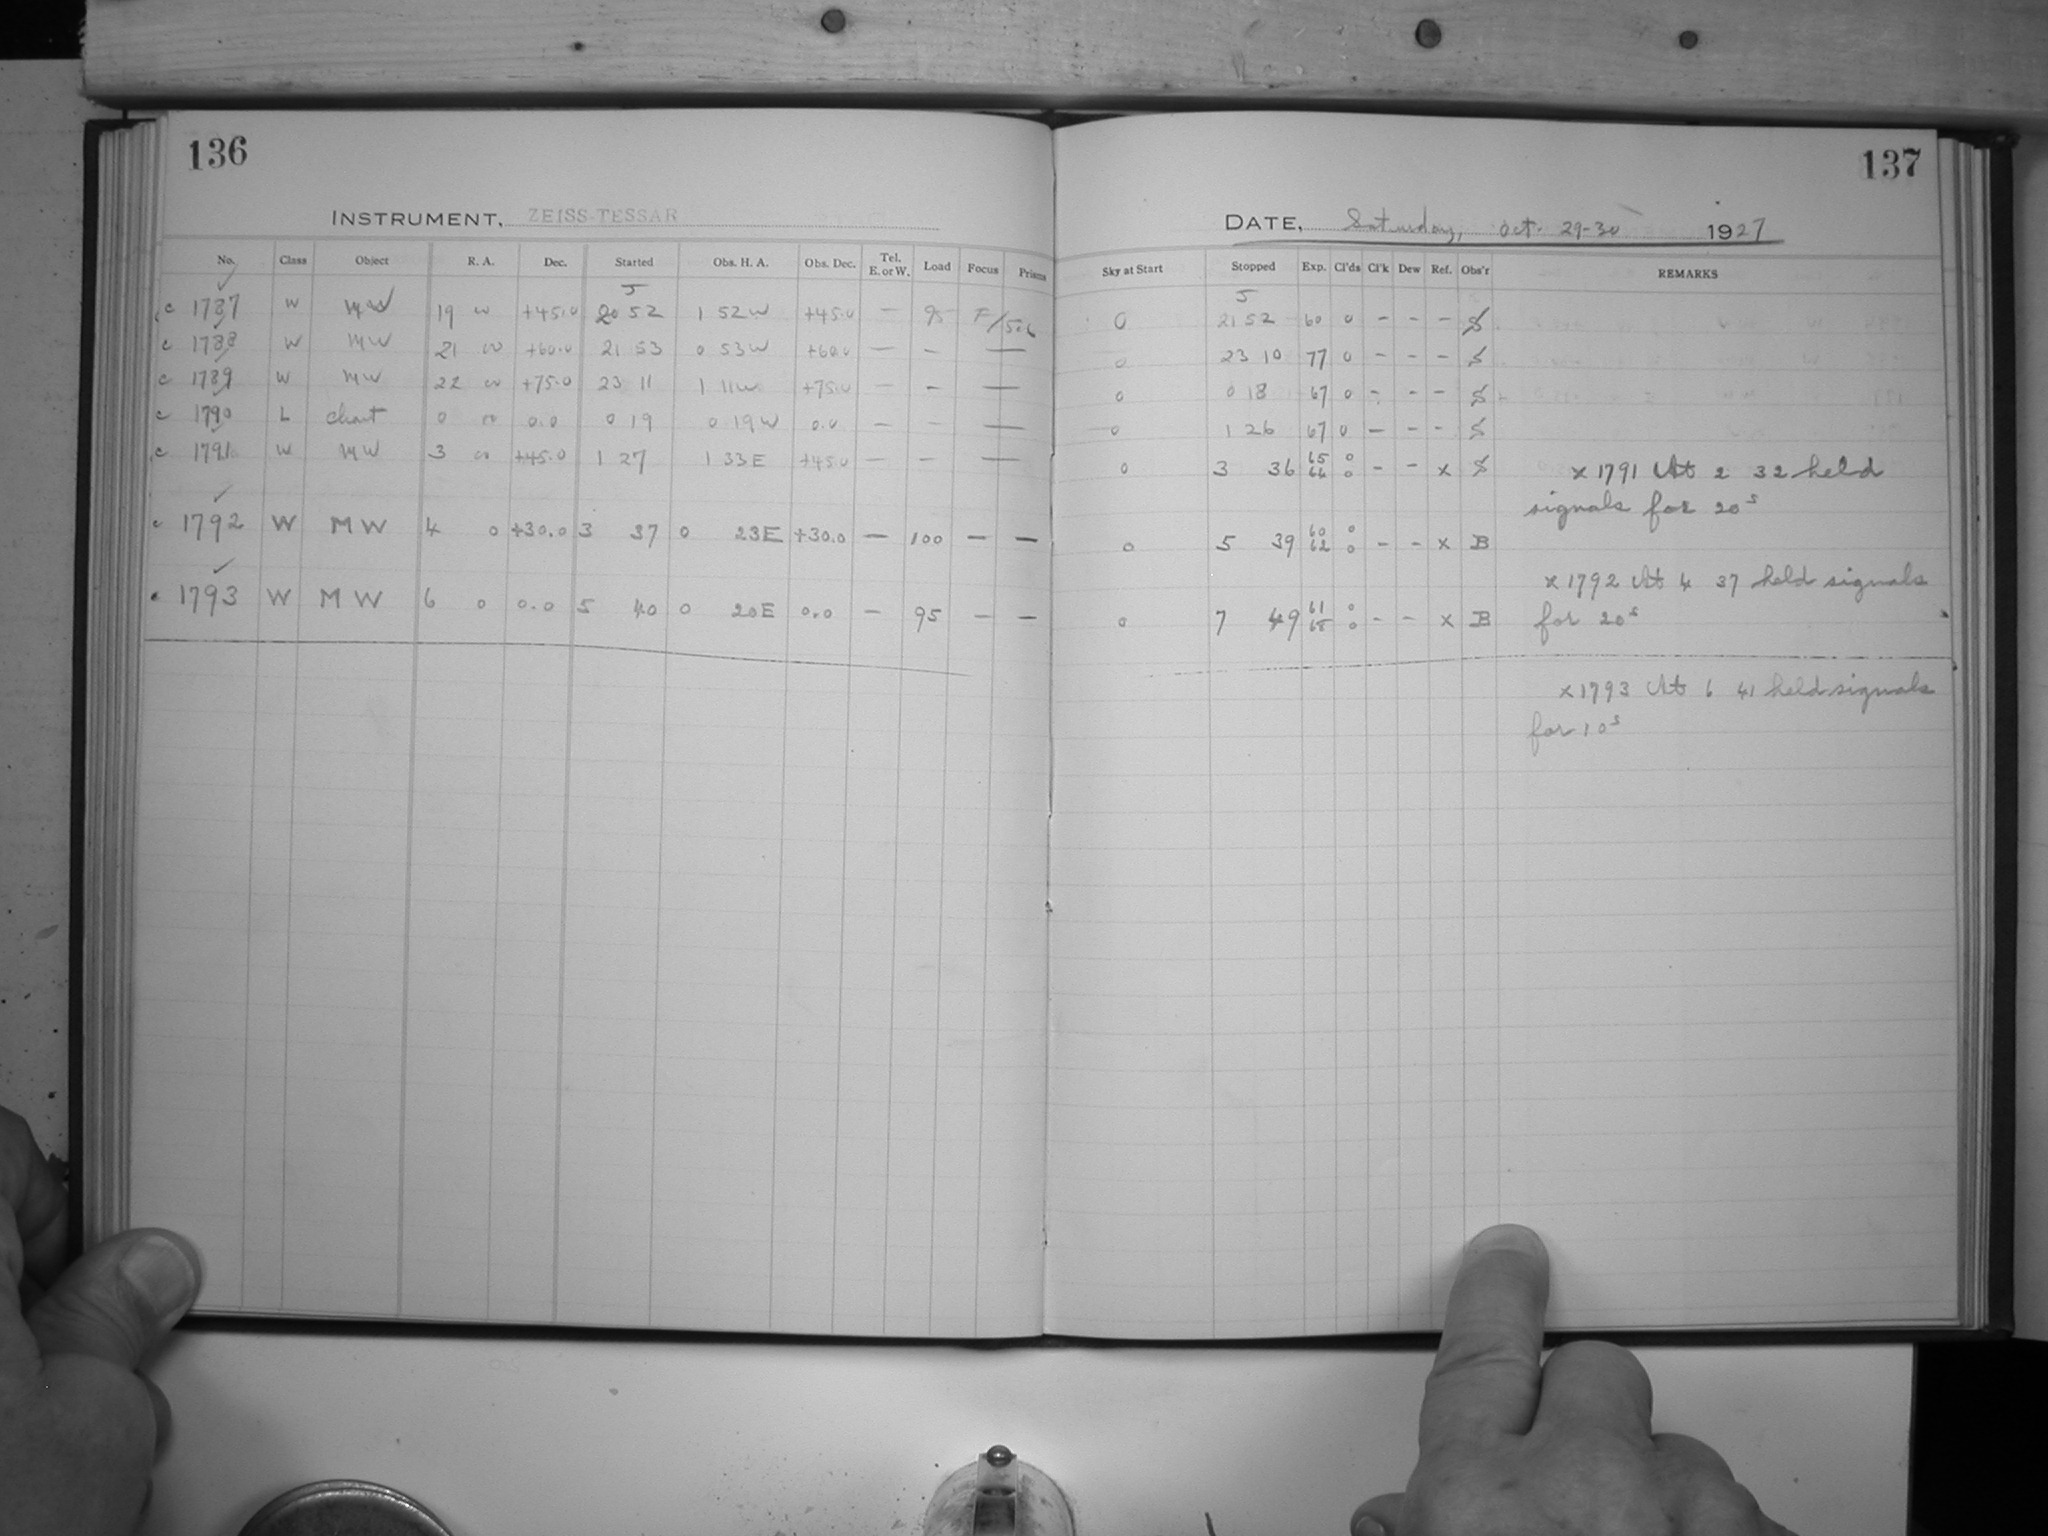 136
INSTRUMENT, ZEISS-TESSAR
No. Class Object R. A. Dec. Started Obs. H. A. Obs. Dec. Tel. E. or W. Load Focus Prisms
c 1787 W MW 19 0 +45.0 20 52 1 52W +45.0 — 95 F/5.6
c 1788 W MW 21 0 +60.0 21 53 0 53W +60.0 — – —
c 1789 W MW 22 0 +75.0 23 11 1 11W +75.0 — – —
c 1790 L chart 0 0 0.0 0 19 0 19W 0.0 – – —
c 1791 W MW 3 0 +45.0 1 27 1 33E +45.0 — – —
c 1792 W MW 4 0 +30.0 3 37 0 23E +30.0 — 100 — —
c 1793 W MW 6 0 0.0 5 40 0 20E 0.0 – 95 – –
137
DATE, Saturday, Oct. 29-30 1927
Sky at Start Stopped Exp. Cl'ds Cl'k Dew Ref. Obs'r REMARKS
0 21 52 60 0 – – – S
0 23 10 77 0 – – – S
0 0 18 67 0 – – – S
0 1 26 67 0 – – – S
0 3 36 65 64 0 0 – – x S x 1791 At 2 32 held
signals for 20s
0 5 39 60 62 0 0 – – x B
x 1792 At 4 37 held signals
0 7 49 61 68 0 0 – – x B for 20s
x 1793 At 6 41 held signals
for 10s